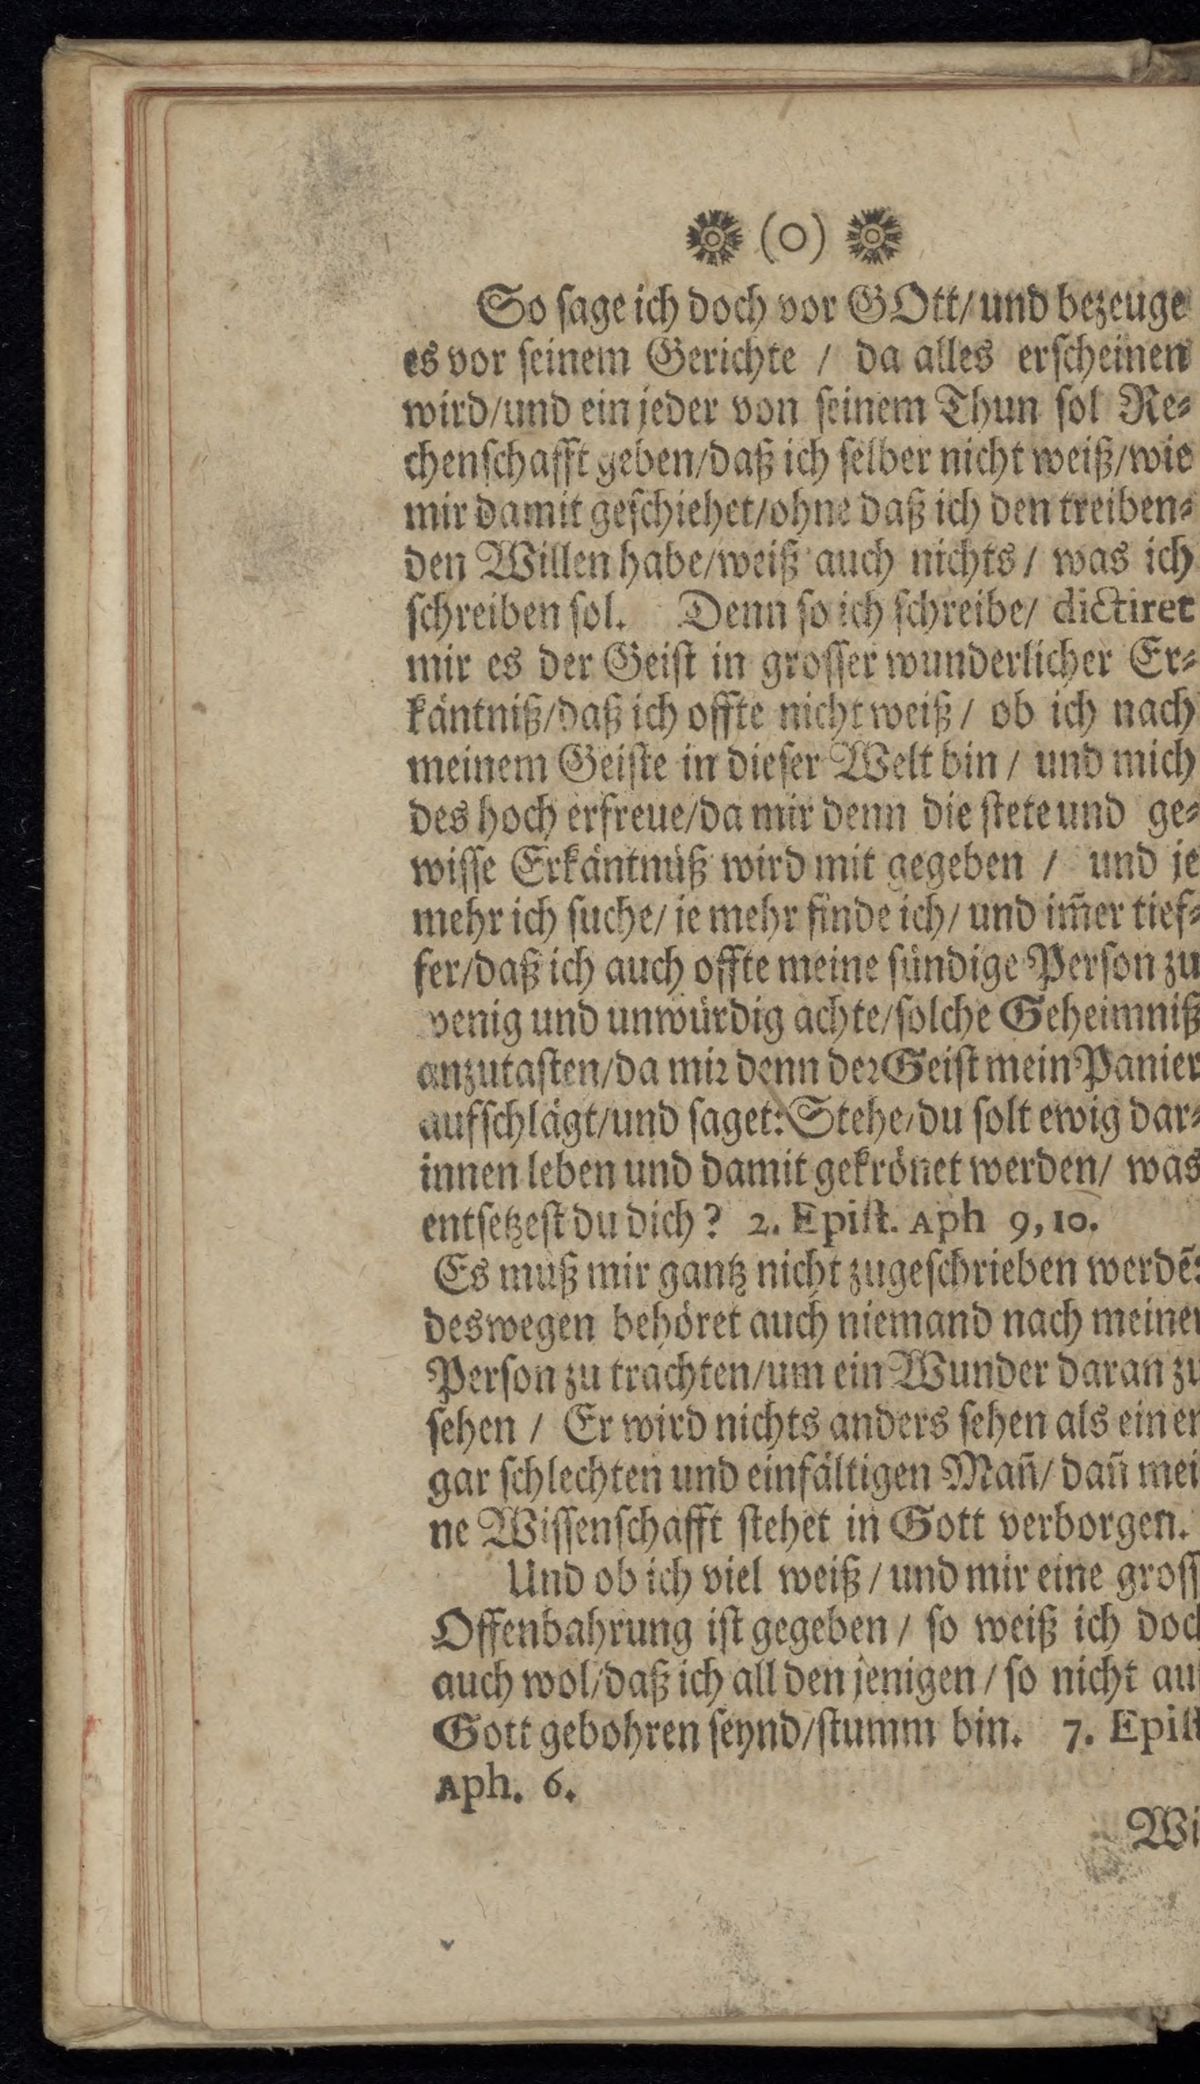 (o)
So ſage ich doch vor GOtt/ und bezeuge
es vor ſeinem Gerichte / da alles erſcheinen
wird/und ein jeder von ſeinem Thun ſol Re⸗
chenſchafft geben/daß ich ſelber nicht weiß/wie
mir damit geſchiehet/ohne daß ich den treiben⸗
den Willen habe/weiß auch nichts / was ich
ſchreiben ſol. Denn ſo ich ſchreibe/ dictiret
mir es der Geiſt in groſſer wunderlicher Er⸗
käntniß/daß ich offte nicht weiß / ob ich nach
meinem Geiſte in dieſer Welt bin / und mich
des hoch erfreue/da mir denn die ſtete und ge⸗
wiſſe Erkäntnüß wird mit gegeben / und je
mehr ich ſuche/ je mehr finde ich/ und im̃er tief⸗
fer/daß ich auch offte meine ſündige Perſon zu
wenig und unwürdig achte/ſolche Geheimniß
anzutaſten/da mir denn der Geiſt mein Panier
aufſchlägt/und ſaget: Stehe/du ſolt ewig dar⸗
innen leben und damit gekrönet werden/ was
entſetzeſt du dich? 2. Epiſt. Aph 9, 10.
Es muß mir gantz nicht zugeſchrieben werdẽ:
deswegen behöret auch niemand nach meiner
Perſon zu trachten/um ein Wunder daran zu
ſehen / Er wird nichts anders ſehen als einen
gar ſchlechten und einfältigen Mañ/ dañ mei
ne Wiſſenſchafft ſtehet in Gott verborgen.
Und ob ich viel weiß / und mir eine groſſ
Offenbahrung iſt gegeben / ſo weiß ich doch
auch wol/daß ich all den jenigen / ſo nicht au
Gott gebohren ſeynd/ſtumm bin. 7. Epiſt
Aph. 6.
Wi